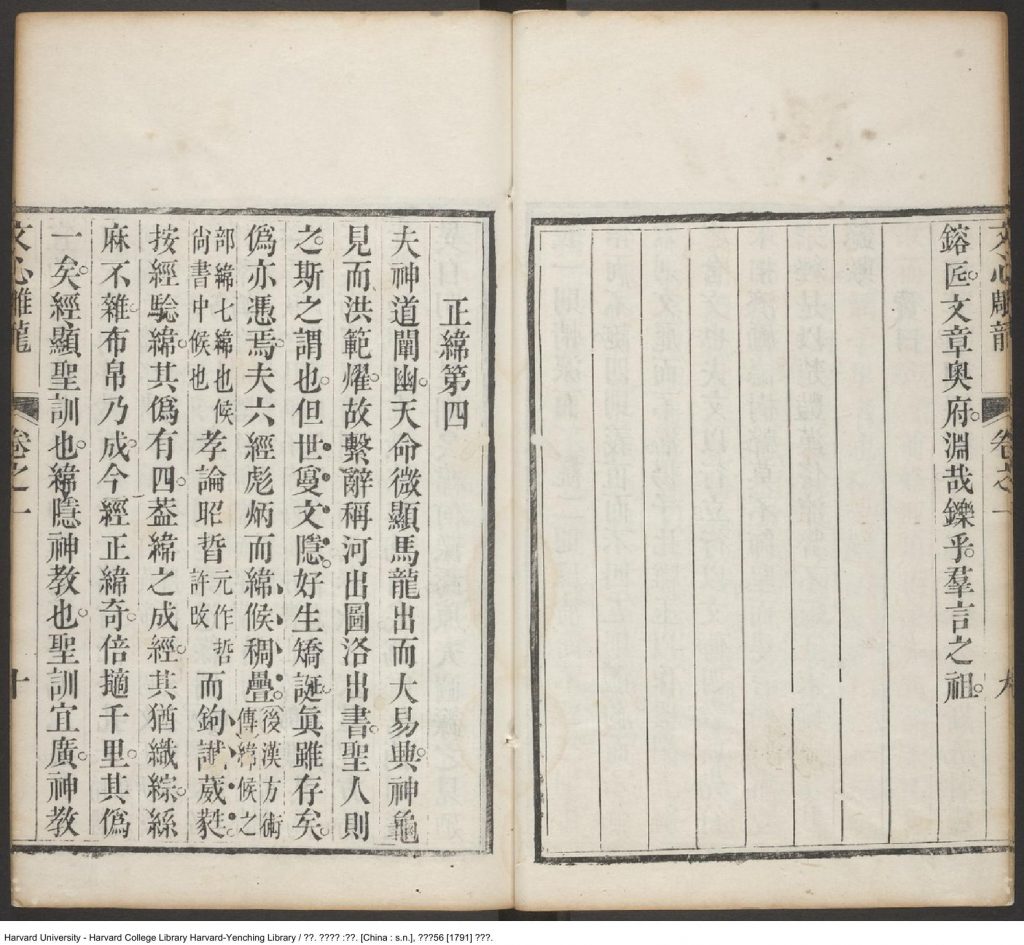 文心雕龍 卷之一 九
鎔匠。文章奥府。淵哉鑠乎。羣言之祖。
正緯第四
夫神道闡幽。天命微顯。馬龍出而大易典。神龜
見而洪範燿。故繫辭稱河出圖。洛出書。聖人則
之。斯之謂也。但世夐文隱。好生矯誕。眞雖存矣。
僞亦憑焉。夫六經彪炳而緯候稠疊。後漢方術傳緯候之
部緯七緯也候尚書中候也孝論昭晢元作哲許攺而鉤讖葳蕤。
按經驗緯。其僞有四。葢緯之成經。其猶織綜。絲
麻不雜。布帛乃成。今經正緯奇。倍擿千里。其僞
一矣。經顯。聖訓也。緯隱。神教也。聖訓宜廣。神教
文心雕龍 卷之一 十
Harvard University - Harvard College Library Harvard-Yenching Library / ??. ???? :??. [China : s.n.], ???56 [1791] ???.